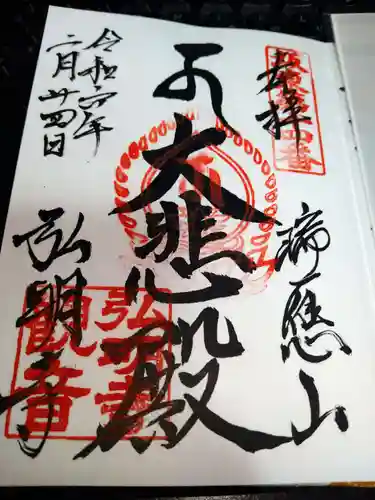 奉拝
坂東第十四番
瑞應山
大悲殿
弘明寺
弘明寺
観音
令和六年
二月廿四日